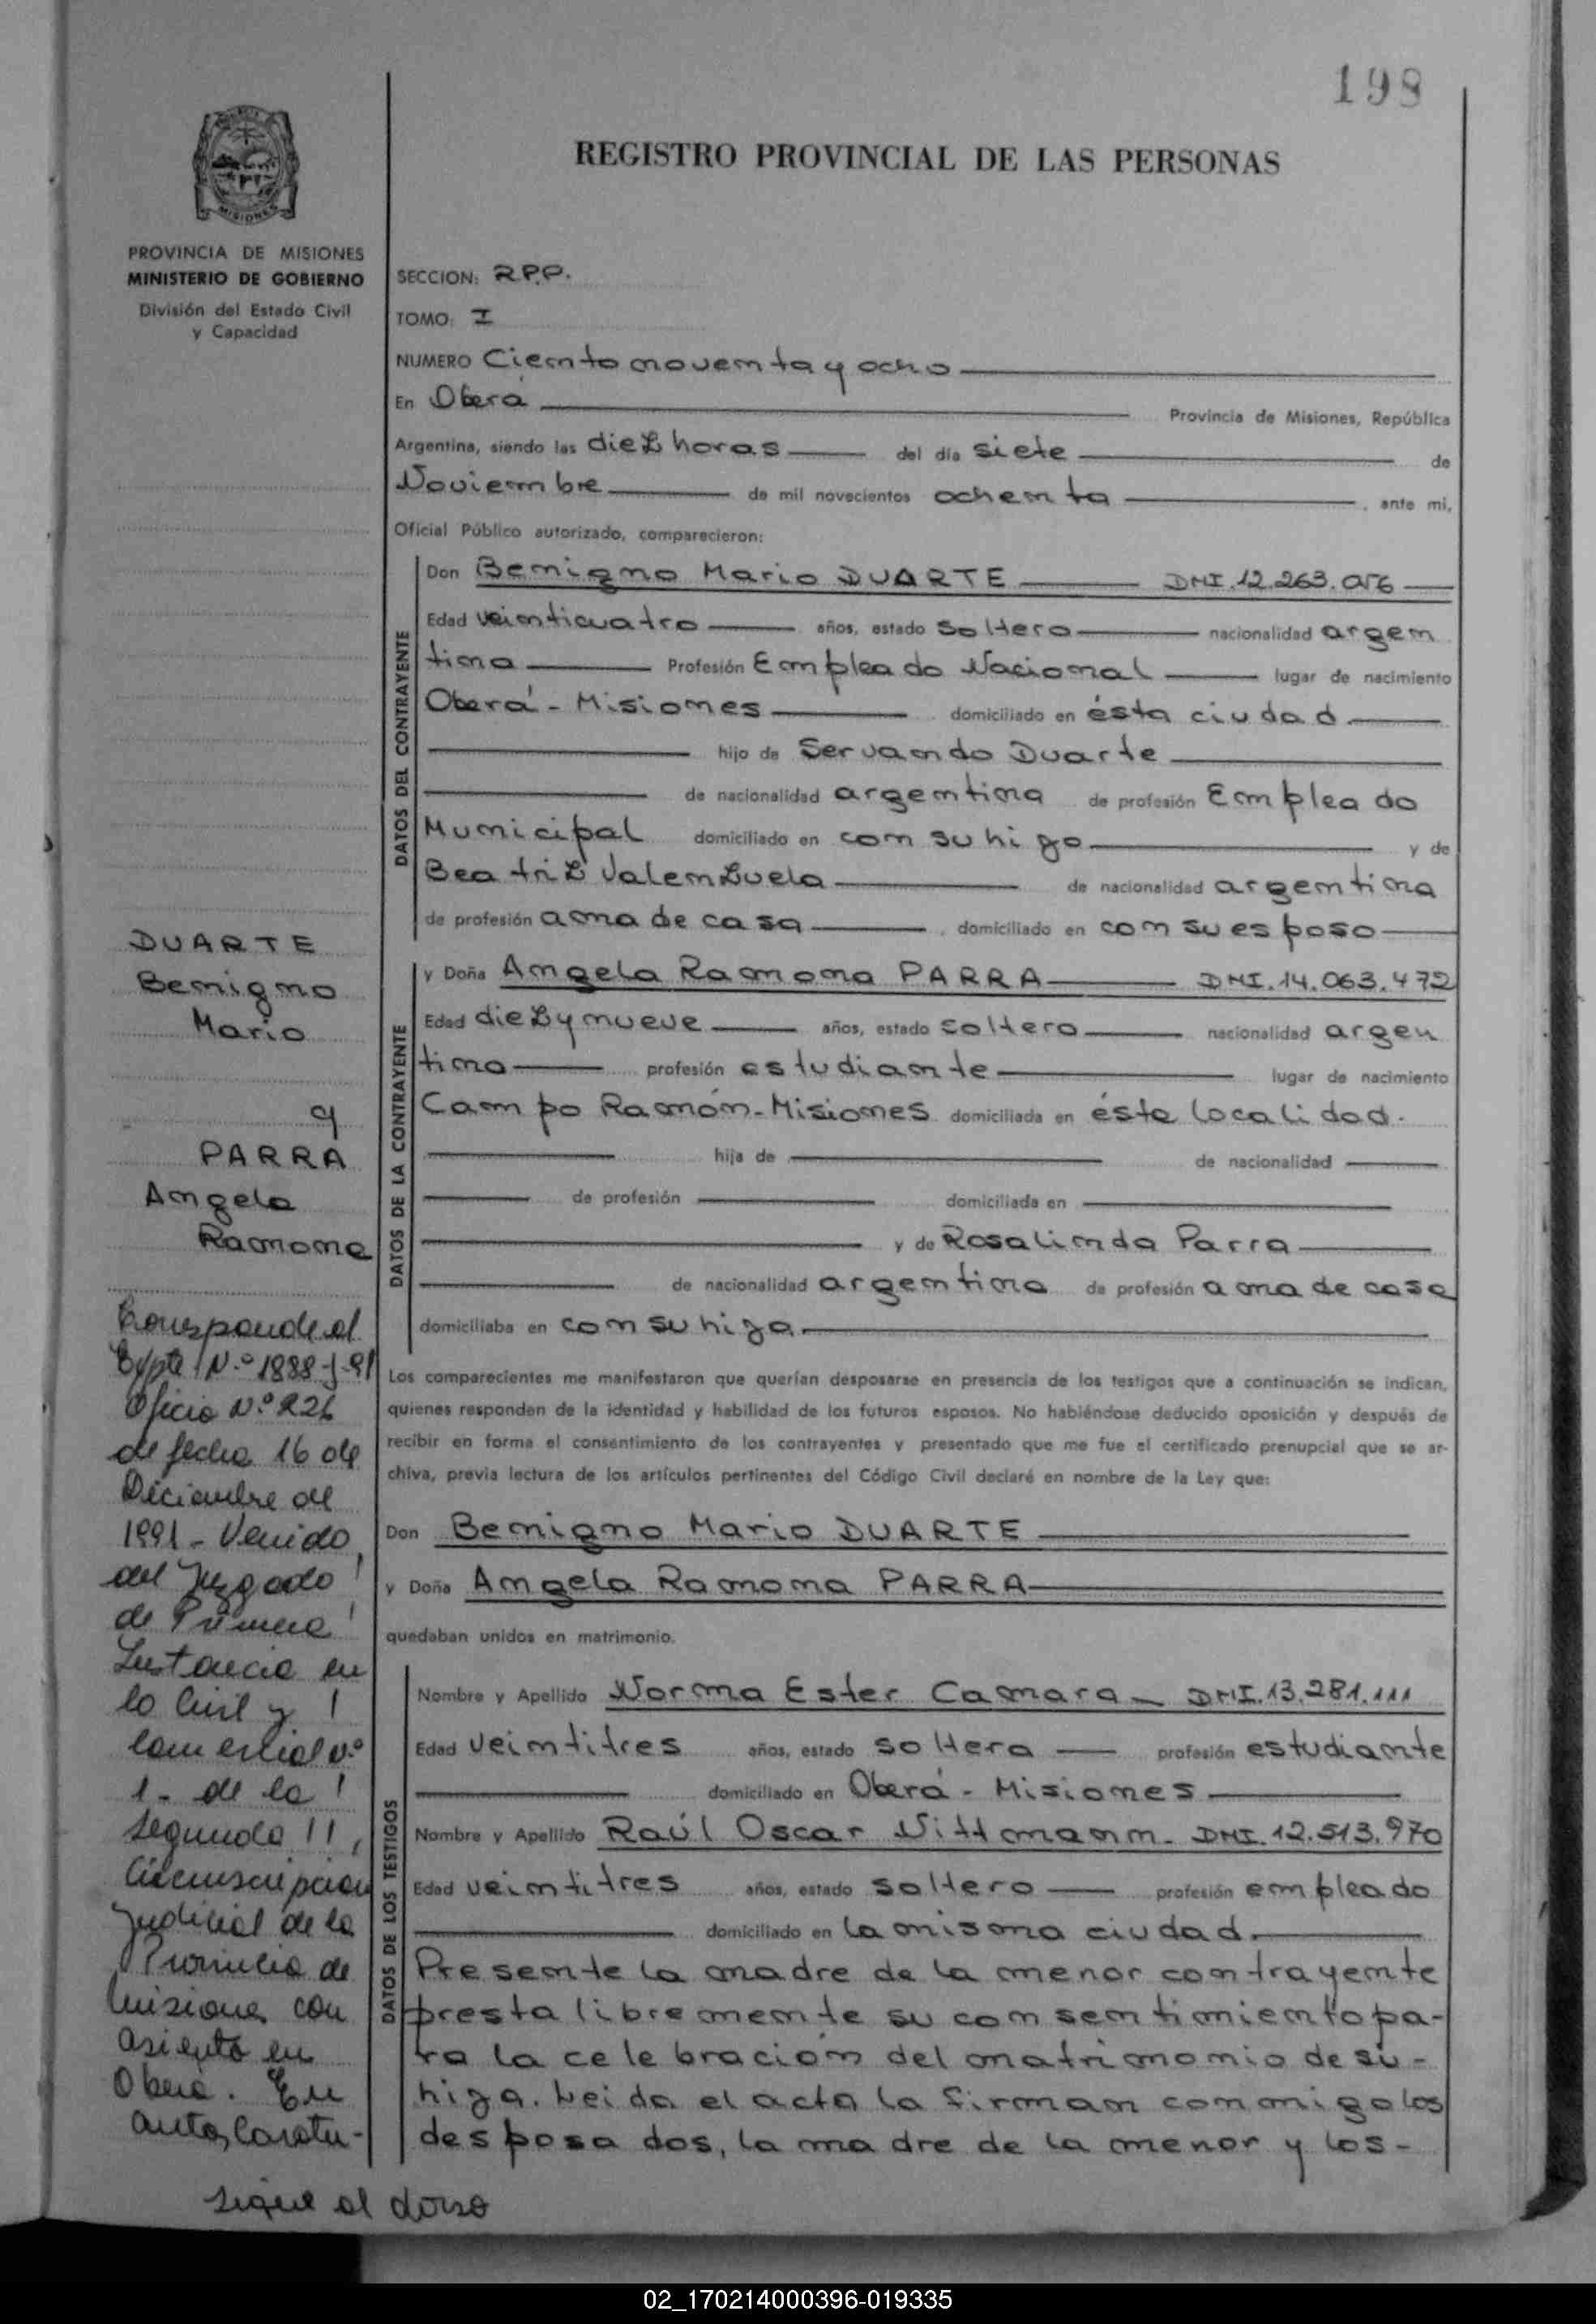 198
REGISTRO PROVINCIAL DE LAS PERSONAS
MISIONES
PROVINCIA DE MISIONES
MINISTERIO DE GOBIERNO
División del Estado Civil
y Capacidad
SECCION: R.P.P.
TOMO: I
NUMERO Ciento noventa y ocho
En Oberá Provincia de Misiones, República
Argentina, siendo las diez horas del día siete de
Noviembre de mil novecientos ochenta, ante mi,
Oficial Público autorizado, comparecieron:
DATOS DEL CONTRAYENTE
Don Benigno Mario DUARTE DNI.12.263.056
Edad veinticuatro años, estado soltero nacionalidad argen
tina Profesión Empleado Nacional lugar de nacimiento
Oberá - Misiones domiciliado en ésta ciudad
hijo de Servando Duarte
de nacionalidad argentina de profesión Empleado
Municipal domiciliado en con su hijo y de
Beatriz Valenzuela de nacionalidad argentina
de profesión ama de casa domiciliado en con su esposo
DATOS DE LA CONTRAYENTE
y Doña Angela Ramona PARRA DNI.14.063.472
Edad diez y nueve años, estado soltero nacionalidad argen
tina profesión estudiante lugar de nacimiento
Campo Ramón-Misiones domiciliada en ésta localidad.
hija de de nacionalidad
de profesión domiciliada en
y de Rosalinda Parra
de nacionalidad argentina de profesión ama de casa
domiciliaba en con su hija
Los comparecientes me manifestaron que querían desposarse en presencia de los testigos que a continuación se indican,
quienes responden de la identidad y habilidad de los futuros esposos. No habiéndose deducido oposición y después de
recibir en forma el consentimiento de los contrayentes y presentado que me fue el certificado prenupcial que se ar-
chiva, previa lectura de los artículos pertinentes del Código Civil declaré en nombre de la Ley que:
Don Benigno Mario DUARTE
y Doña Angela Ramona PARRA
quedaban unidos en matrimonio.
DATOS DE LOS TESTIGOS
Nombre y Apellido Norma Ester Camara DNI.13.281.111
Edad veintitres años, estado soltera profesión estudiante
domiciliado en Oberá - Misiones
Nombre y Apellido Raúl Oscar Vittmann. DNI.12.513.970
Edad veintitres años, estado soltero profesión empleado
domiciliado en la misma ciudad.
Presente la madre de la menor contrayente
presta libremente su consentimiento pa-
ra la celebración del matrimonio de su-
hija. Leida el acta la firman conmigo los
desposados, la madre de la menor y los-
DUARTE
Benigno
Mario
y
PARRA
Angela
Ramona
Corresponde al
Expte Nº 1888-J-91
Oficio Nº 226
de fecha 16 de
Diciembre de
1991 - Venido
del Juzgado
de Primera
Instancia en
lo Civil y
Comercial Nº
1 - de la
Segunda
Circunscripcion
Judicial de la
Provincia de
Misiones con
asiento en
Oberá. En
autos Caratu-
sigue al dorso
02_170214000396-019335